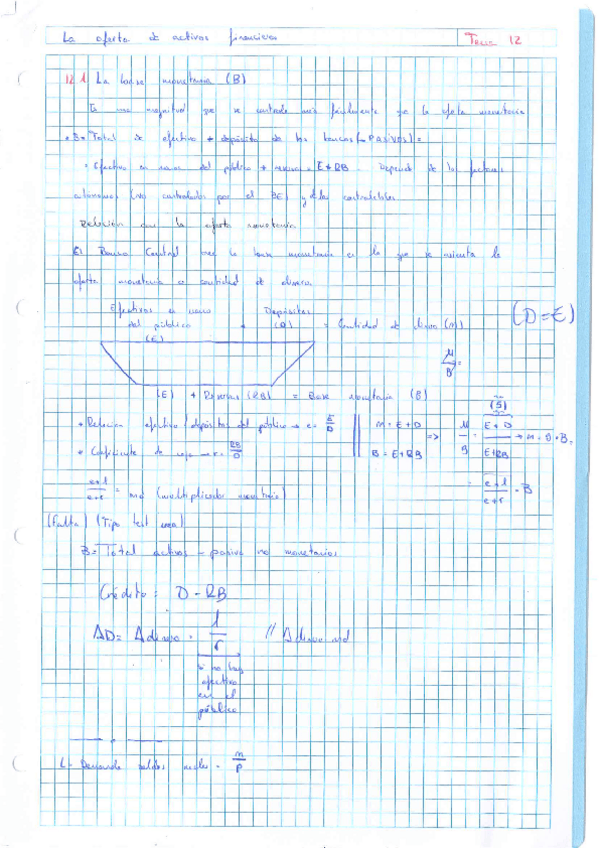 La oferta de activos financieros
Tema 12
12.1 La base monetaria (B)
Es una magnitud que se controla más fácilmente que la oferta monetaria
• B = Total de efectivo + depósito de los bancos (PASIVOS) =
= Efectivo en manos del público + reservas = E + RB. Depende de los factores
autónomos (no controlados por el BE) y de los controlables
Relación con la oferta monetaria
El Banco Central crea la base monetaria en la que se asienta la
oferta monetaria o cantidad de dinero.
Efectivos en mano Depósitos
del público + (D) = Cantidad de dinero (M)
(E)
(D = E)
M/B =
(E) + Reservas (RB) = Base monetaria (B)
• Relación efectivo/depósitos del público → e = E/D
• Coeficiente de caja → r = RB/D
M = E + D
B = E + RB
=> M/B = (E + D)/(E + RB) → M = · B
= (e + 1)/(e + r) · B
(e + 1)/(e + r) = md (multiplicador monetario)
(Falta) (Tipo test)
B = Total activos - pasivo no monetarios
Crédito: D - RB
ΔD = Δ dinero · 1/r // Δ dinero · md
si no hay
efectivo
en el
público
L = Demanda saldos reales = M/P